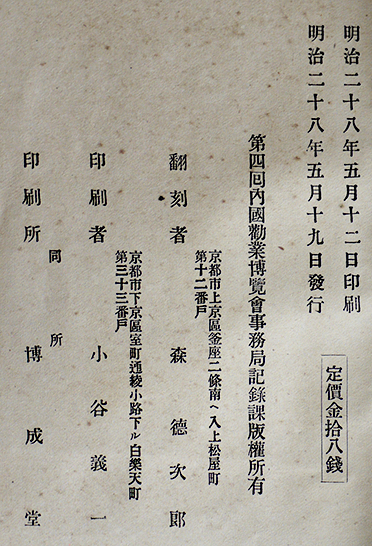 明治二十八年五月十二日印刷
明治二十八年五月十九日發行
定價金拾八錢
第四回內國勸業博覽會事務局記錄課版權所有
京都市上京區釜座二條南ヘ入上松屋町
第十二番戶
翻刻者 森德次郎
京都市下京區室町通綾小路下ル白樂天町
第三十三番戶
印刷者 小谷義一
同所
印刷所 博成堂